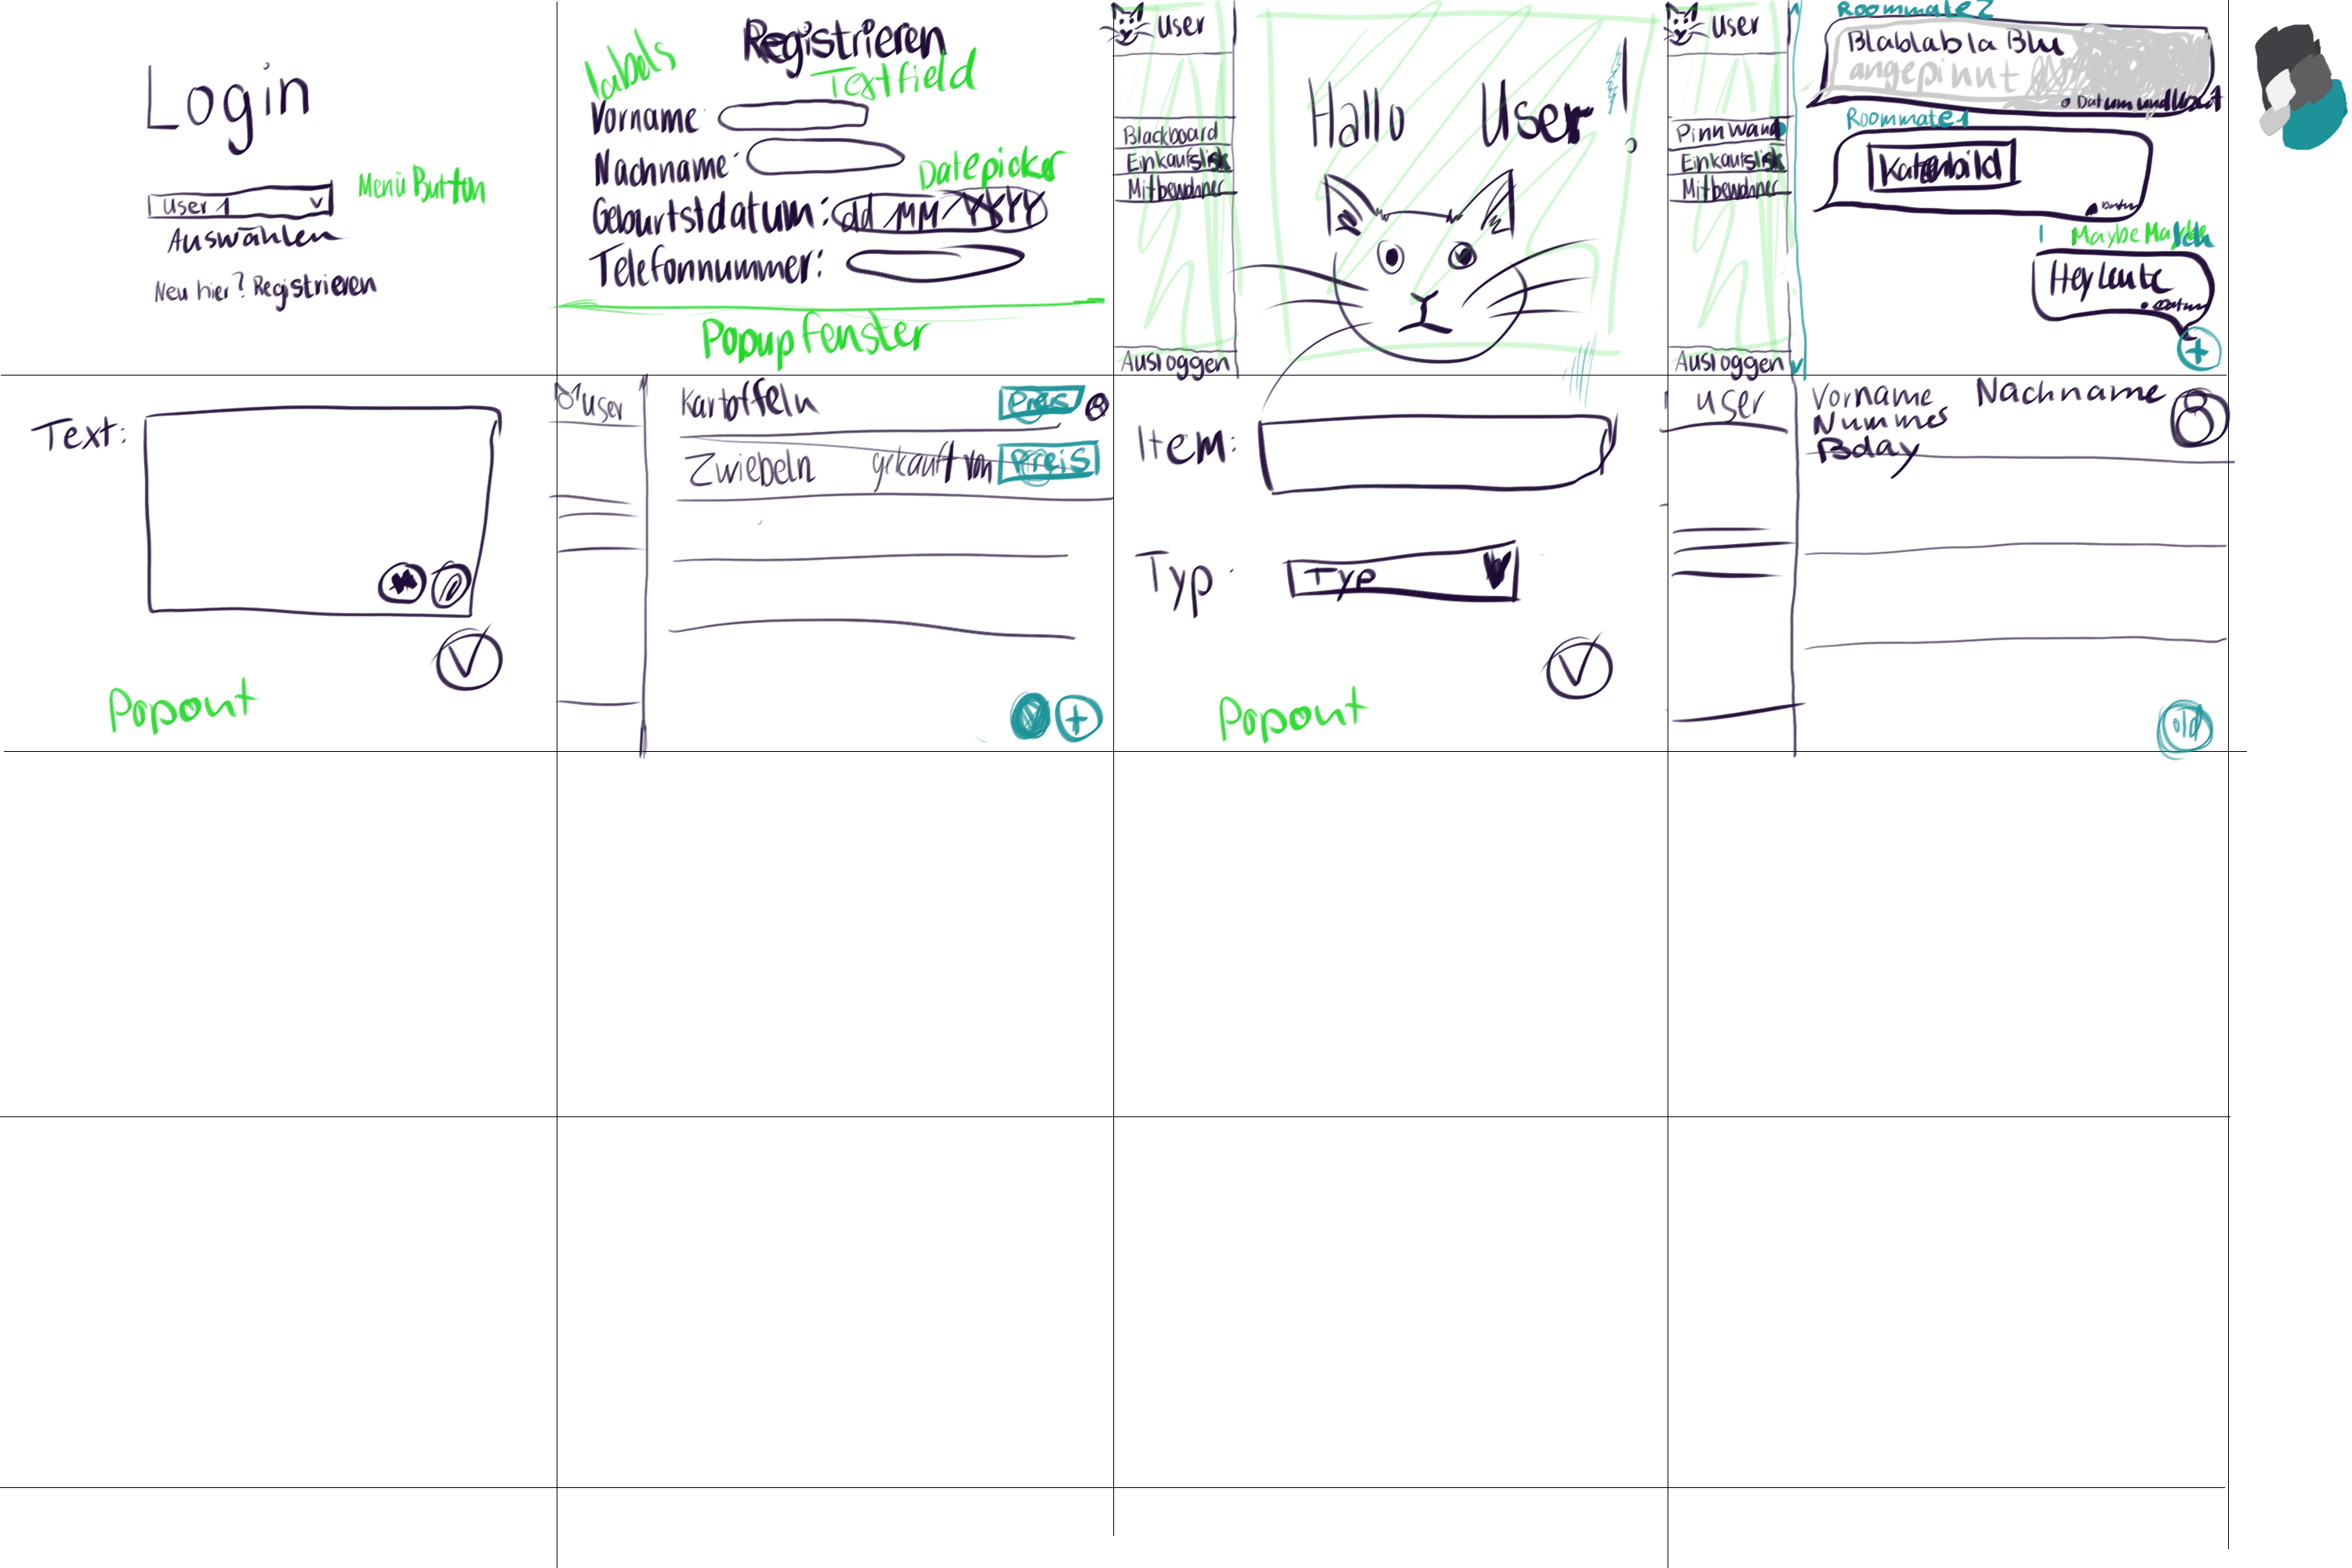 Login
User 1
Menü Button
Auswählen
Neu hier? Registrieren
Registrieren
Labels
Textfield
Vorname:
Nachname:
Datepicker
Geburtstdatum: dd MM YYYY
Telefonnummer:
Popup Fenster
User
Blackboard
Einkaufsliste
Mitbewohner
Ausloggen
Hallo User!
User
Pinnwand
Einkaufsliste
Mitbewohner
Ausloggen
Roommate2
Blablabla Blu
angepinnt
Datum und
Roommate1
Katzenbild
Datum
Maybe Ich
Hey Leute
Datum
+
Text:
Popout
User
Kartoffeln Preis
Zwiebeln gekauft von Preis
+
Item:
Typ:
Typ
Popout
user
Vorname Nachname
Nummer
Bday
old